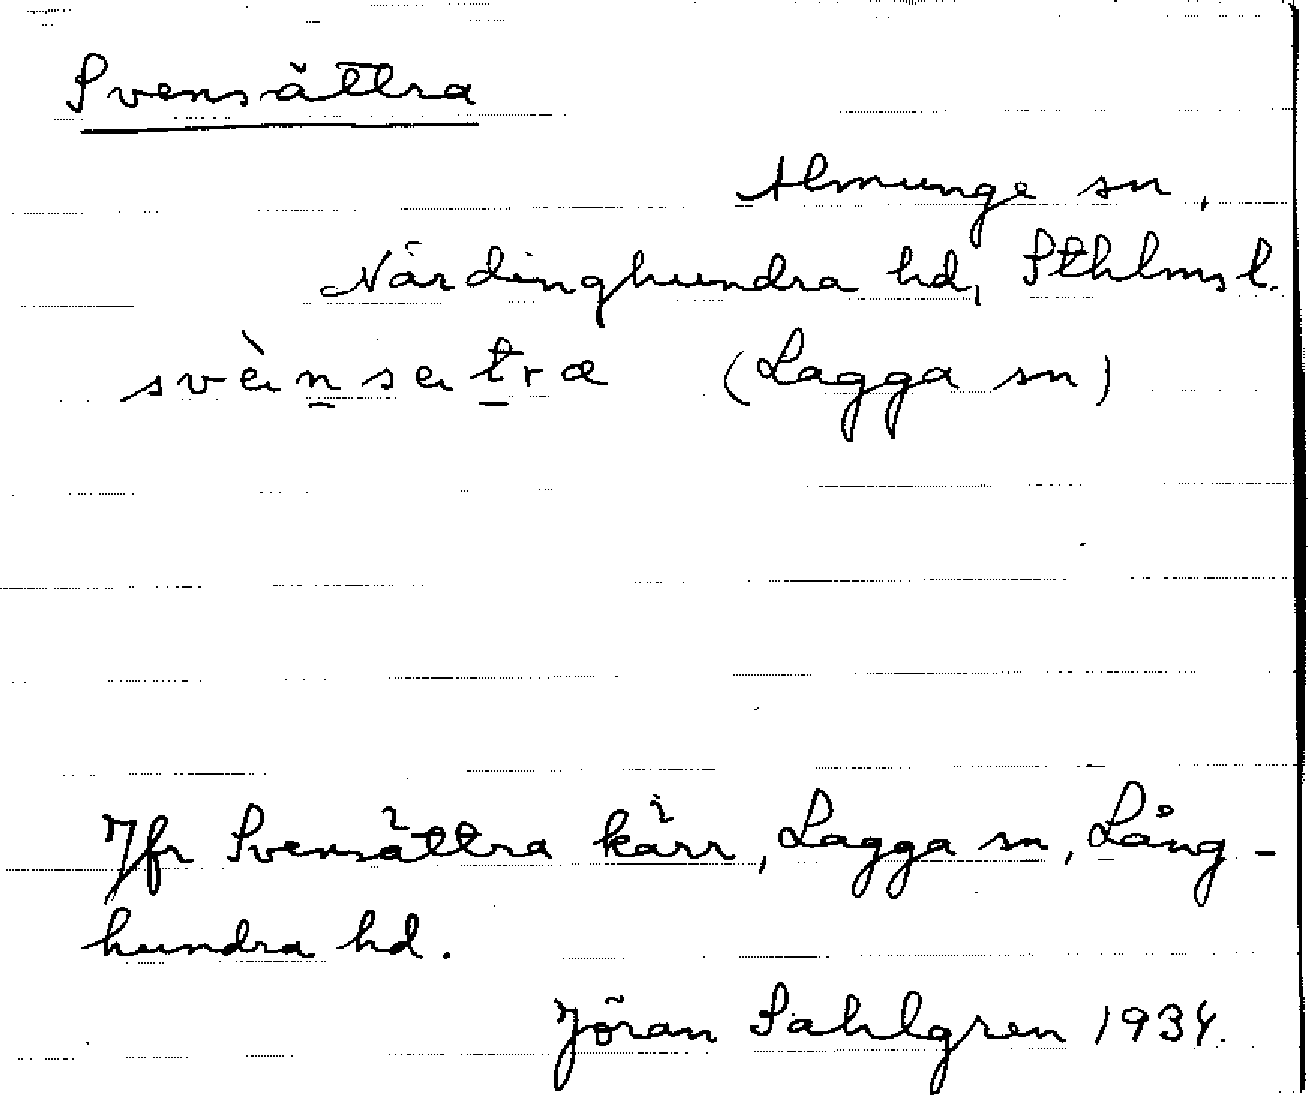 Svensättra
Almunge sn,
Närdinghundra hd, Sthlms l.
svὲnsɛtra (Lagga sn)
Jfr Svensättra kärr, Lagga sn, Lång-
hundra hd.
Jöran Sahlgren 1934.